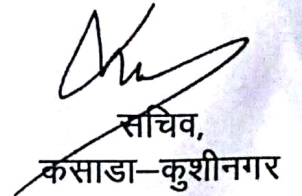 सचिव,
कसाडा–कुशीनगर